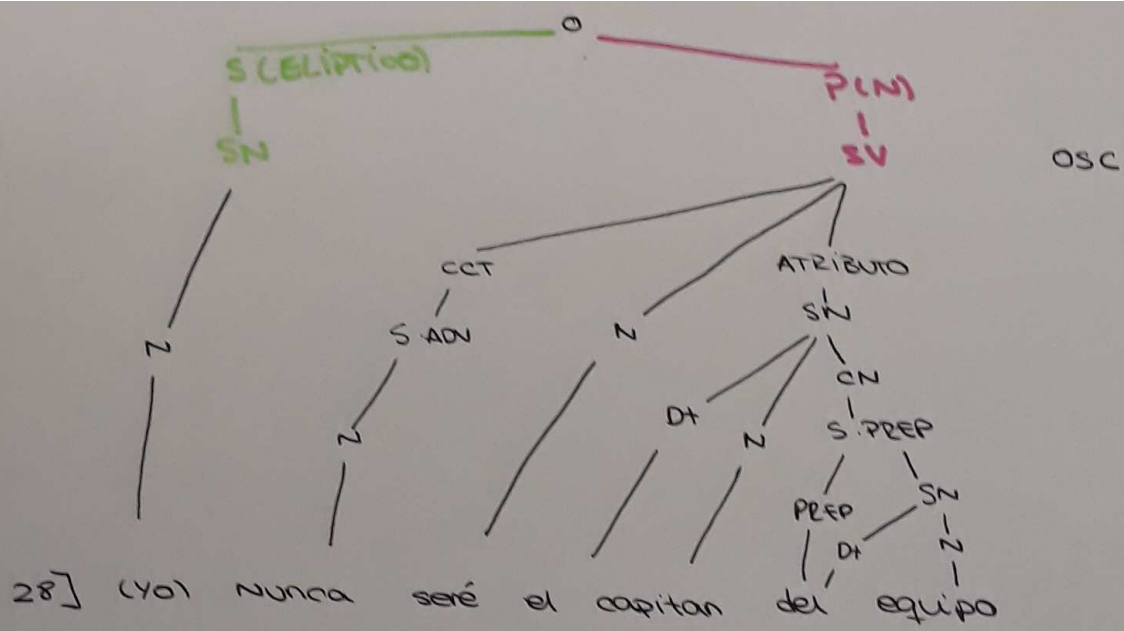 O
S (ELÍPTICO) P(N)
SN SV OSC
CCT ATRIBUTO
N S. ADV N SN
CN
Dt N S. PREP
N
PREP SN
Dt N
28] (YO) Nunca seré el capitan del equipo